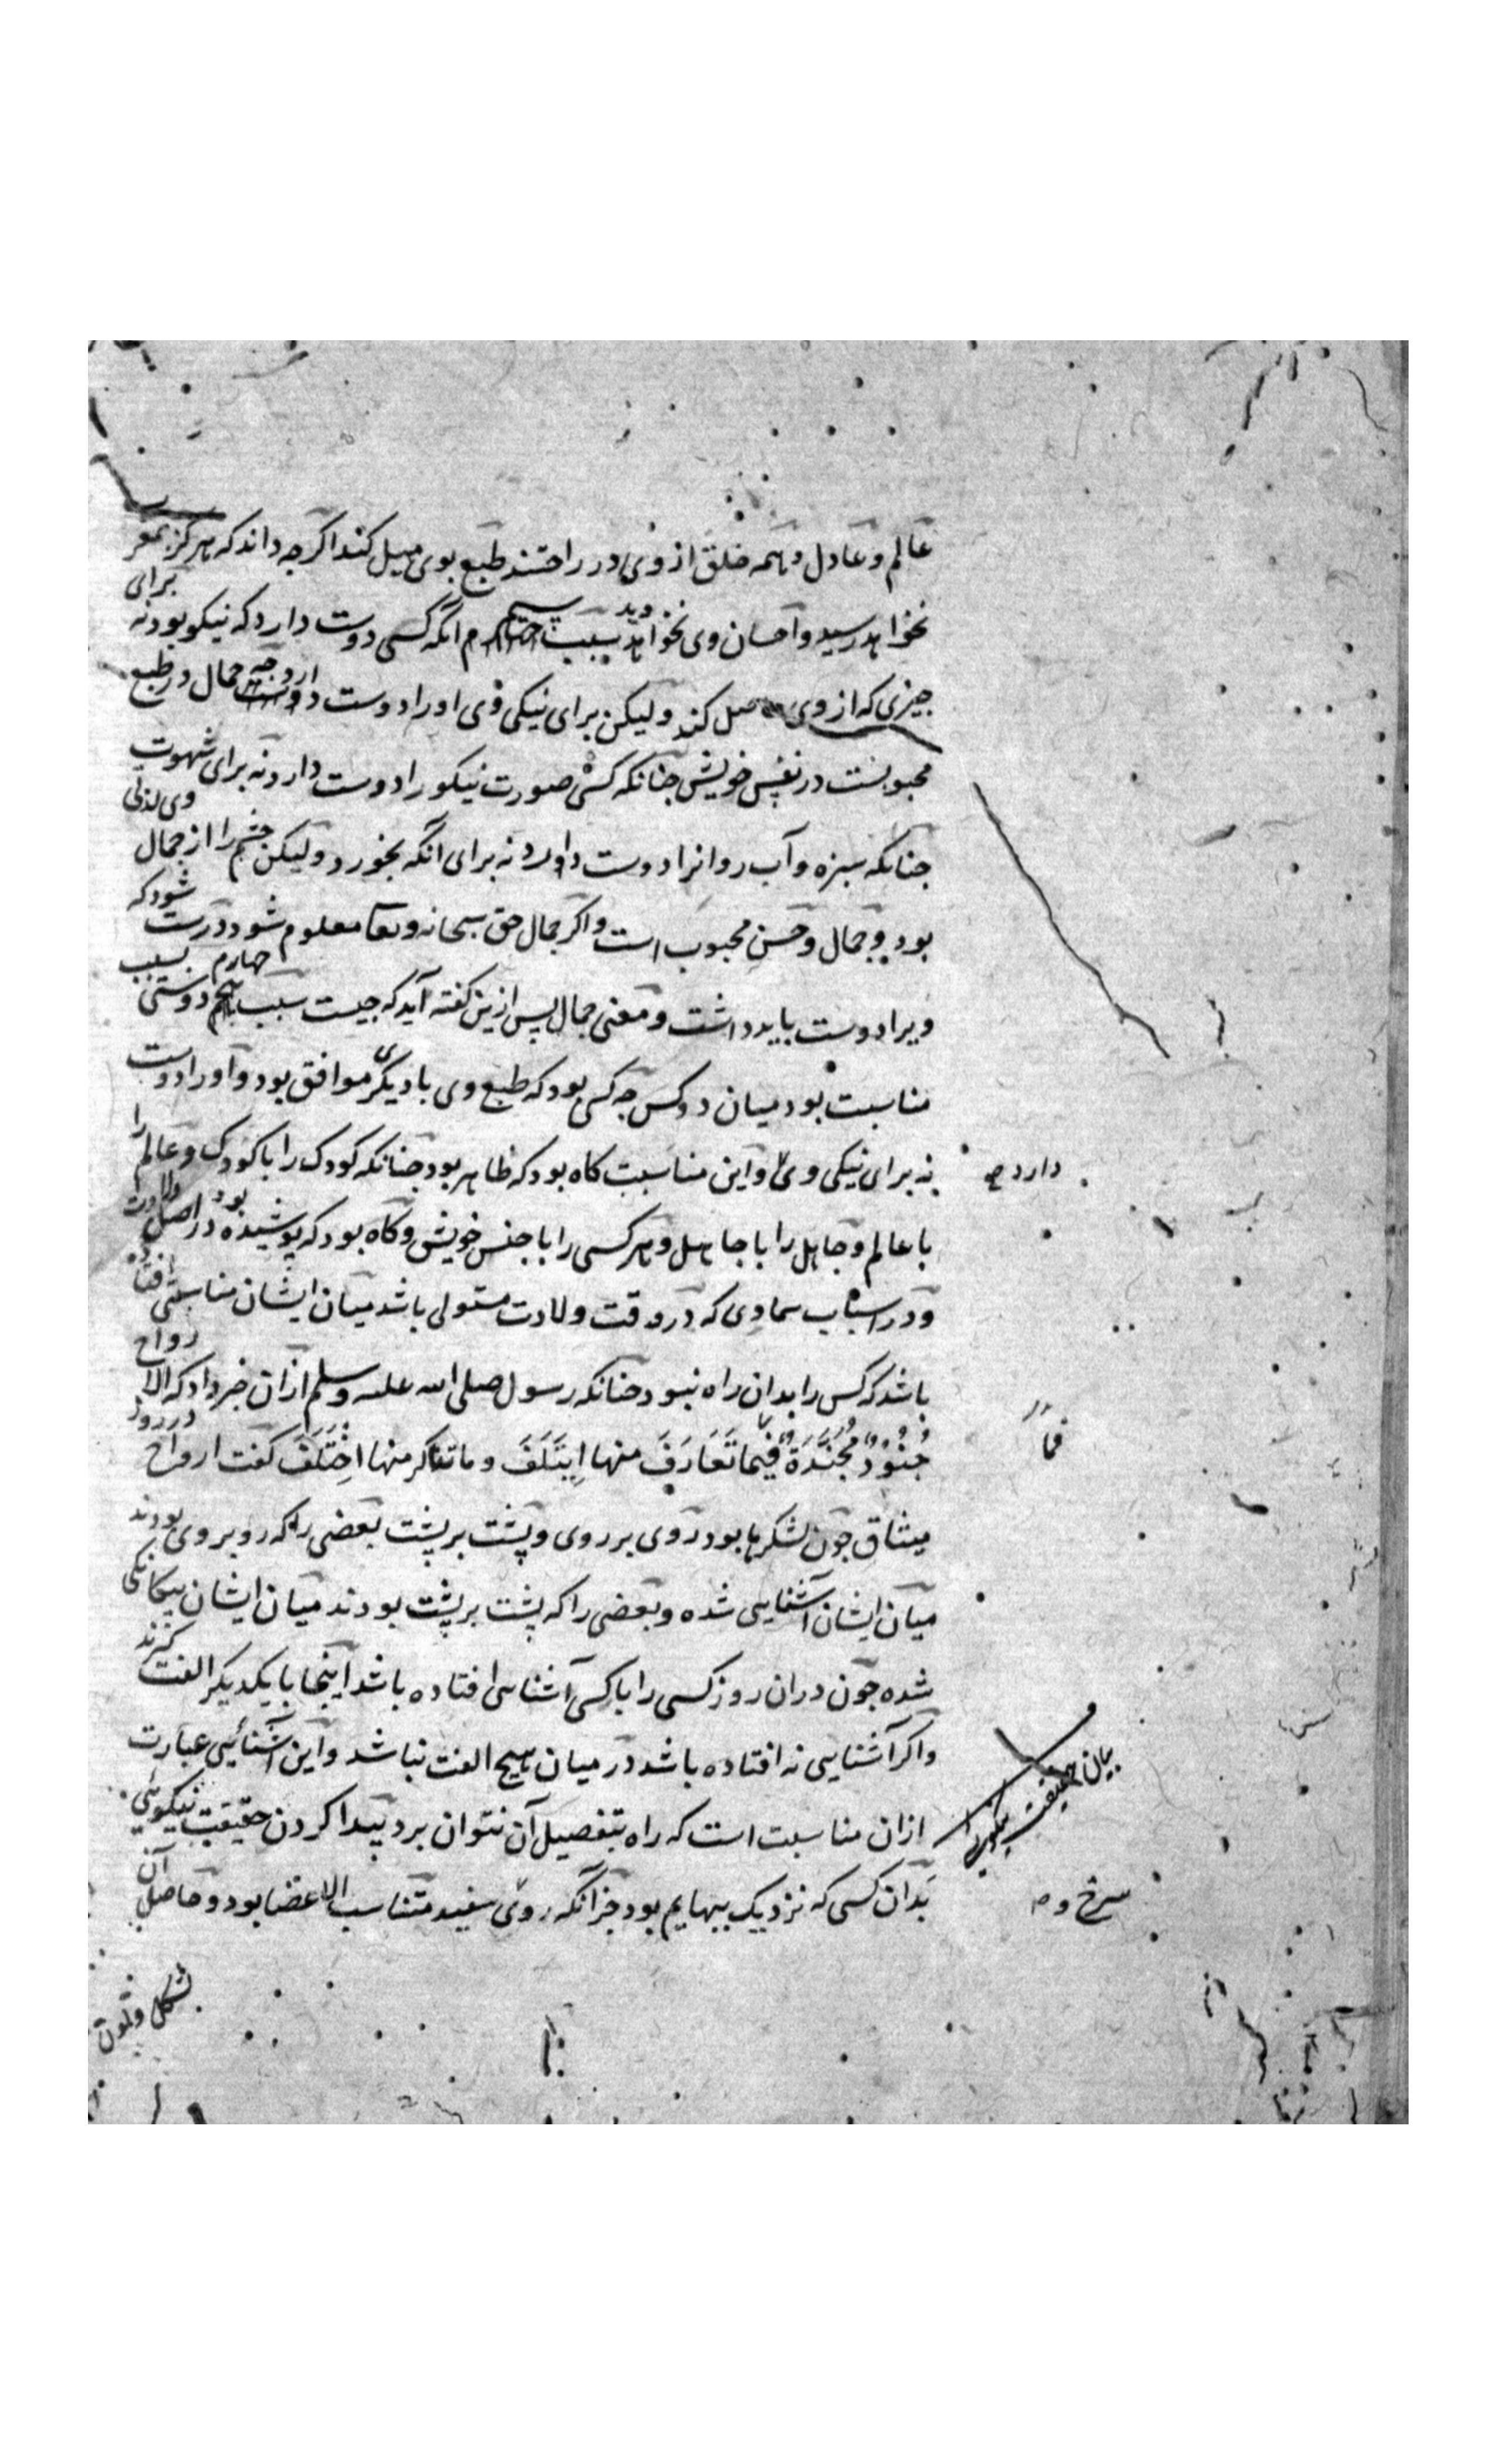 عالم و عادل و همه خلق از وی در راحتند طبع بوی میل کند اکرجه داند که هرکز
برای
نخواهد رسید و احسان وی نخواهد دید سبب سیم انکه کسی دوست دارد که نیکو بود نه
جیزی که از وی حاصل کند ولیکن برای نیکی وی او را دوست دارد جه جمال در طبع
محبوبست در نفس خویش جنانکه کسی صورت نیکو را دوست دارد نه برای شهوت
جنانکه سبزه و آب روانرا دوست دارد نه برای آنکه بخورد ولیکن چشم را از جمال
وی لذتی
بود و جمال و حسن محبوب است و اکر جمال حق سبحانه و تعا معلوم شود درست
شود که
ویرا دوست باید داشت و معنی جمال پس ازین کفته آید که جیست سبب چهارم دوستی بسبب
مناسبت بود میان دو کس جه کس بود که طبع وی با دیکری موافق بود و او را دوست
دارد
نه برای نیکی وی و این مناسبت کاه بود که ظاهر بود جنانکه کودک را با کودک و عالم را
با عالم و جاهل را با جاهل و هر کسی را با جنس خویش و کاه بود که پوشیده بود در اصل ولادت
و در اسباب سماوی که در وقت ولادت مستولی باشد میان ایشان مناسبتی افتاده
باشد که کس را بدان راه نبود جنانکه رسول صلی الله علیه وسلم ازان خبر داد که الارواح
فما
جُنُودٌ مُجَنَّدَةٌ فیما تَعَارَفَ منها اِیتَلَفَ و ما تناکر منها اخْتَلَفَ کفت ارواح در روز
میثاق جون لشکرها بود روی بر روی و پشت بر پشت بعضی را که روبروی بودند
میان ایشان آشنایی شده و بعضی را که پشت بر پشت بودند میان ایشان بیکانکی
شده جون دران روز کسی را با کسی آشنایی افتاده باشد اینجا با یکدیکر الفت کیرند
و اکر آشنایی نه افتاده باشد در میان هیج الفت نباشد و این آشنائیی عبارت
بیان حقیقت نیکویی
ازان مناسبت است که راه بتفصیل آن نتوان برد پیدا کردن حقیقت نیکویی
بدان کسی که نزدیک ببهایم بود جز آنکه روی سفید متناسب الاعضا بود و حاصل آن
سرخ و
بشکل و لون